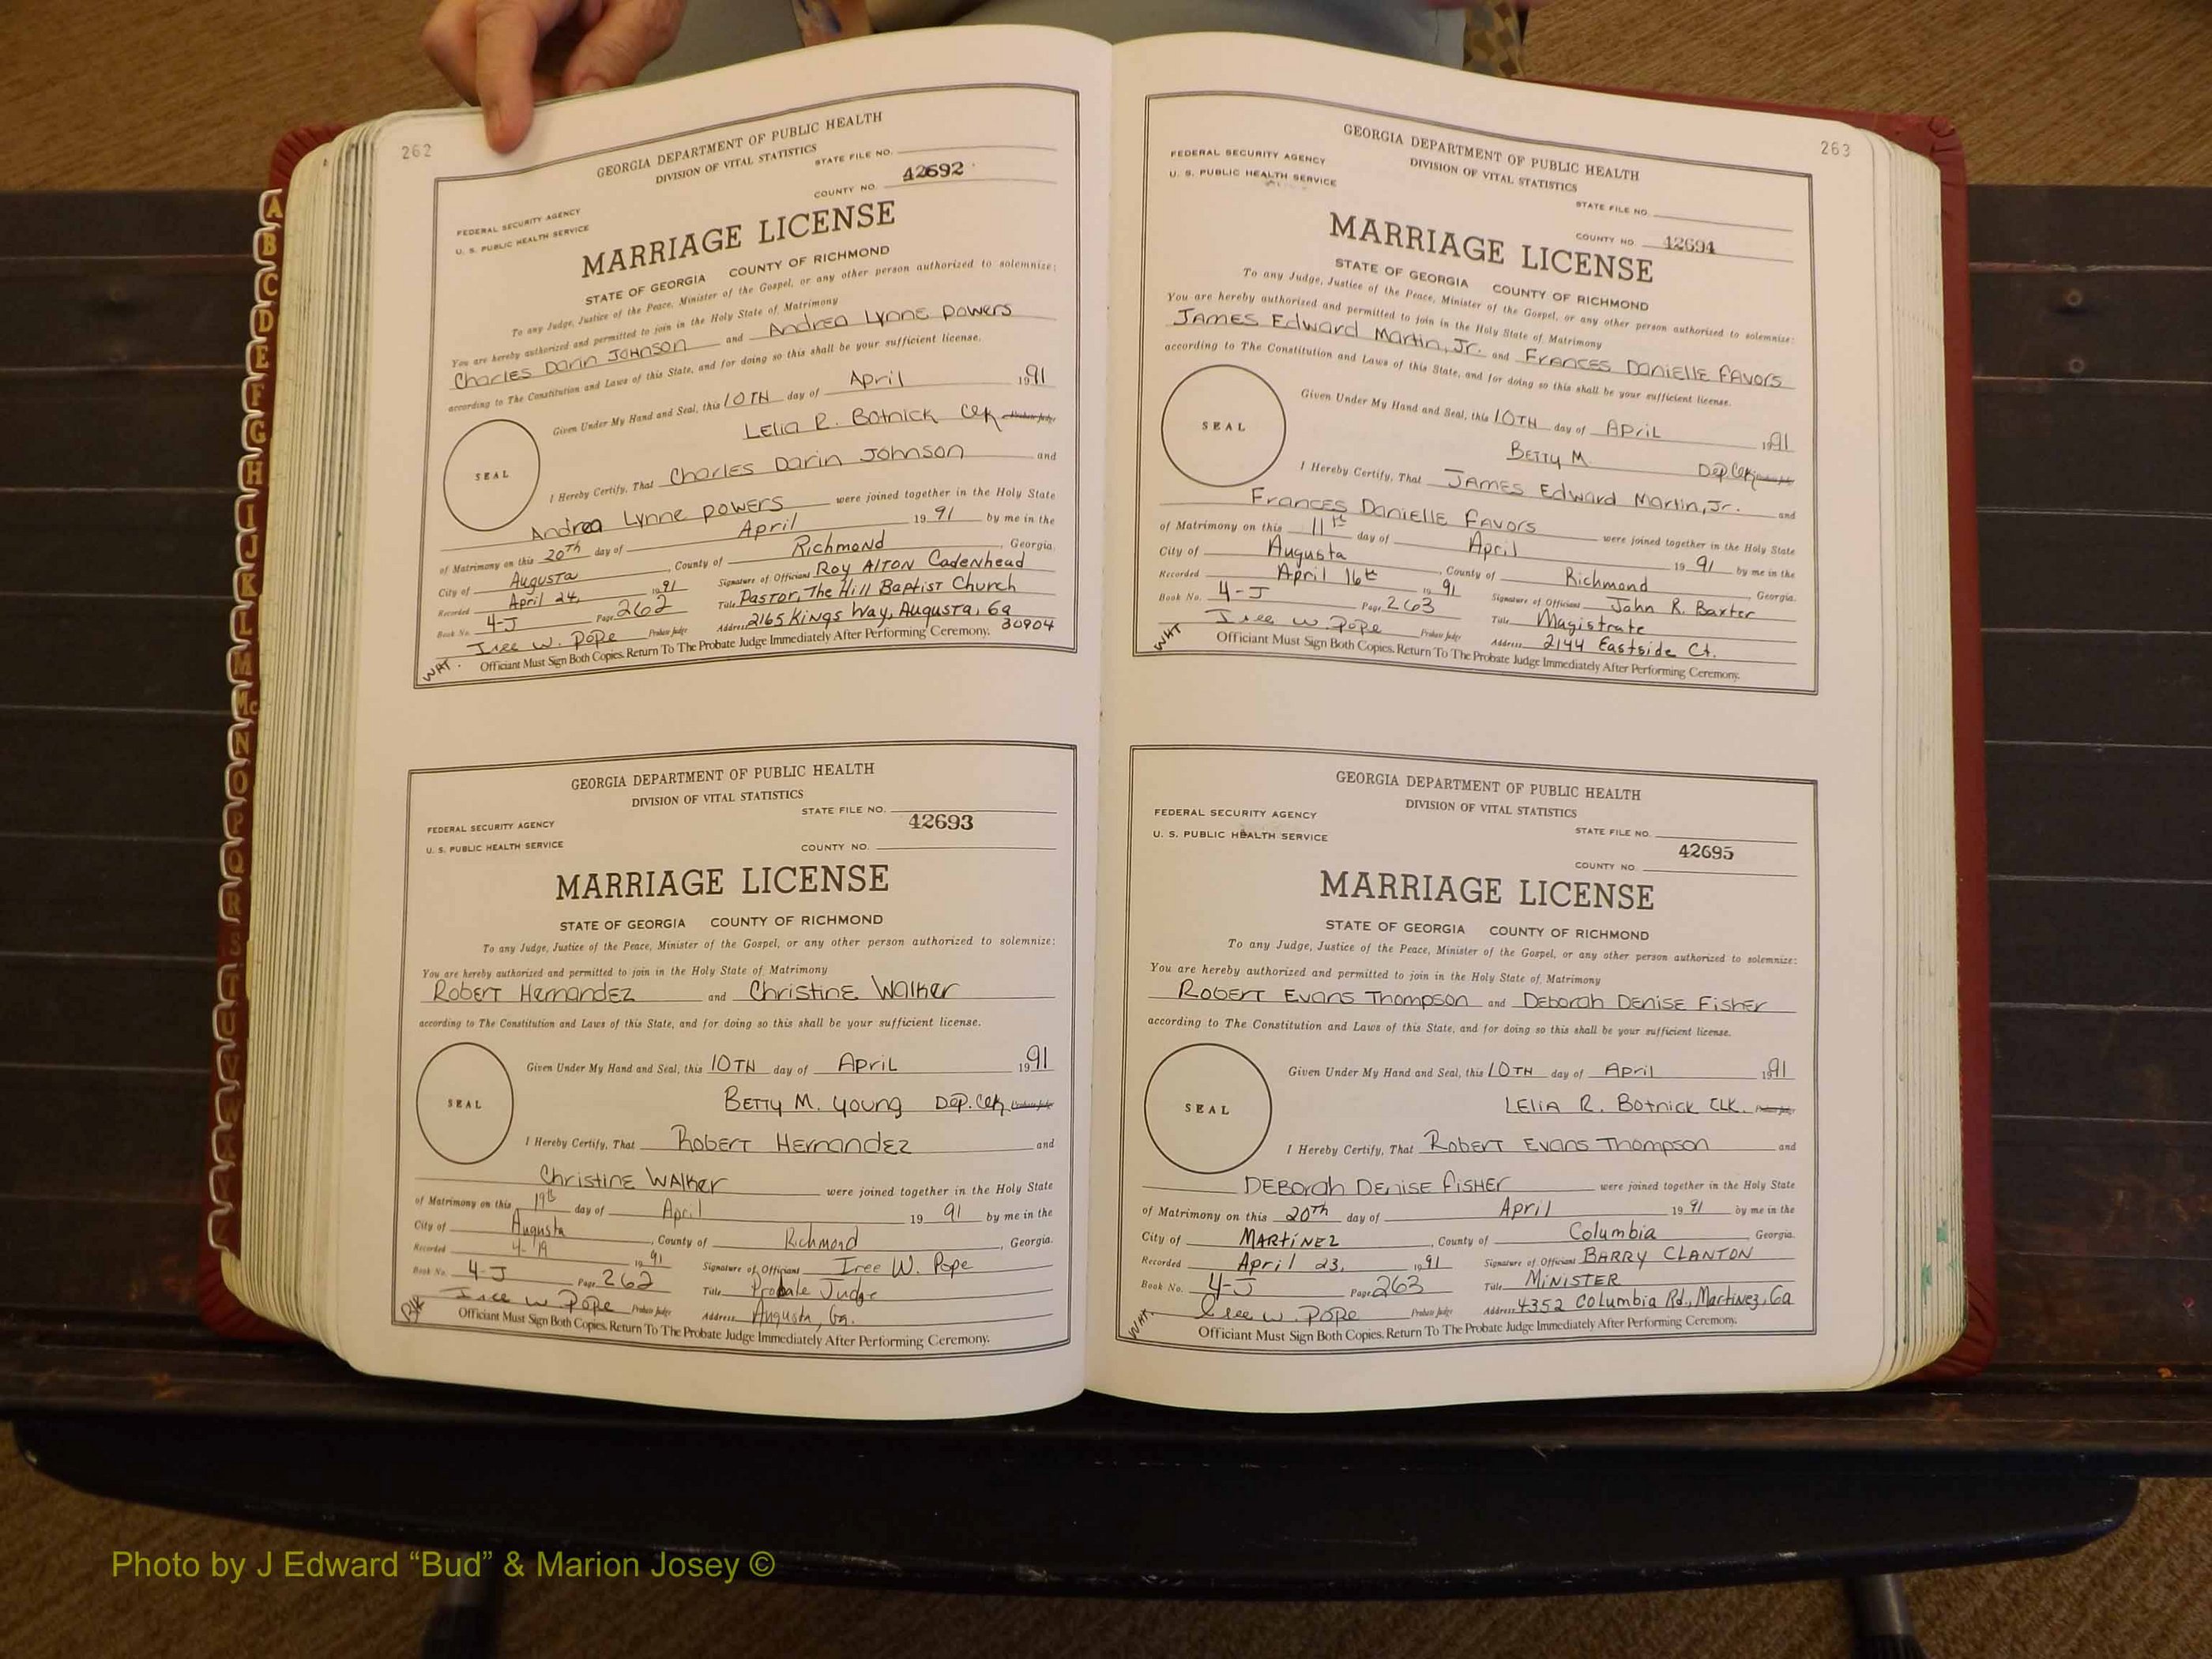 262
GEORGIA DEPARTMENT OF PUBLIC HEALTH
DIVISION OF VITAL STATISTICS
STATE FILE NO.
COUNTY NO. 42692
FEDERAL SECURITY AGENCY
U. S. PUBLIC HEALTH SERVICE
MARRIAGE LICENSE
STATE OF GEORGIA COUNTY OF RICHMOND
To any Judge, Justice of the Peace, Minister of the Gospel, or any other person authorized to solemnize:
You are hereby authorized and permitted to join in the Holy State of Matrimony
Charles Darin Johnson and Andrea Lynne Powers
according to The Constitution and Laws of this State, and for doing so this shall be your sufficient license.
Given Under My Hand and Seal, this 10TH day of April 1991
SEAL
Lelia R. Botnick Clk Probate Judge
I Hereby Certify, That Charles Darin Johnson and
Andrea Lynne Powers were joined together in the Holy State
of Matrimony on this 20th day of April 19 91 by me in the
City of Augusta, County of Richmond, Georgia.
Recorded April 24, 1991 Signature of Officiant Roy Alton Cadenhead
Book No. 4-J Page 262 Title Pastor, The Hill Baptist Church
Iree W. Pope Probate Judge Address 2165 Kings Way, Augusta, Ga 30904
WHT. Officiant Must Sign Both Copies. Return To The Probate Judge Immediately After Performing Ceremony.
GEORGIA DEPARTMENT OF PUBLIC HEALTH
DIVISION OF VITAL STATISTICS
STATE FILE NO.
42693
FEDERAL SECURITY AGENCY
U. S. PUBLIC HEALTH SERVICE
COUNTY NO.
MARRIAGE LICENSE
STATE OF GEORGIA COUNTY OF RICHMOND
To any Judge, Justice of the Peace, Minister of the Gospel, or any other person authorized to solemnize:
You are hereby authorized and permitted to join in the Holy State of Matrimony
Robert Hernandez and Christine Walker
according to The Constitution and Laws of this State, and for doing so this shall be your sufficient license.
Given Under My Hand and Seal, this 10TH day of April 1991
SEAL
Betty M. Young Dep. Clk Probate Judge
I Hereby Certify, That Robert Hernandez and
Christine Walker were joined together in the Holy State
of Matrimony on this 19th day of April 19 91 by me in the
City of Augusta, County of Richmond, Georgia.
Recorded 4-19 1991 Signature of Officiant Iree W. Pope
Book No. 4-J Page 262 Title Probate Judge
Iree W. Pope Probate Judge Address Augusta, Ga.
Officiant Must Sign Both Copies. Return To The Probate Judge Immediately After Performing Ceremony.
263
GEORGIA DEPARTMENT OF PUBLIC HEALTH
DIVISION OF VITAL STATISTICS
FEDERAL SECURITY AGENCY
U. S. PUBLIC HEALTH SERVICE
STATE FILE NO.
COUNTY NO. 42694
MARRIAGE LICENSE
STATE OF GEORGIA COUNTY OF RICHMOND
To any Judge, Justice of the Peace, Minister of the Gospel, or any other person authorized to solemnize:
You are hereby authorized and permitted to join in the Holy State of Matrimony
James Edward Martin, Jr. and Frances Danielle Favors
according to The Constitution and Laws of this State, and for doing so this shall be your sufficient license.
Given Under My Hand and Seal, this 10TH day of April 1991
SEAL
Betty M. Dep Clk Probate Judge
I Hereby Certify, That James Edward Martin, Jr. and
Frances Danielle Favors were joined together in the Holy State
of Matrimony on this 11th day of April 19 91 by me in the
City of Augusta, County of Richmond Georgia.
Recorded April 16th 1991 Signature of Officiant John R. Baxter
Book No. 4-J Page 263 Title Magistrate
Iree W. Pope Probate Judge Address 2144 Eastside Ct.
WHT Officiant Must Sign Both Copies. Return To The Probate Judge Immediately After Performing Ceremony.
GEORGIA DEPARTMENT OF PUBLIC HEALTH
DIVISION OF VITAL STATISTICS
FEDERAL SECURITY AGENCY
U. S. PUBLIC HEALTH SERVICE
STATE FILE NO.
42695
COUNTY NO.
MARRIAGE LICENSE
STATE OF GEORGIA COUNTY OF RICHMOND
To any Judge, Justice of the Peace, Minister of the Gospel, or any other person authorized to solemnize:
You are hereby authorized and permitted to join in the Holy State of Matrimony
Robert Evans Thompson and Deborah Denise Fisher
according to The Constitution and Laws of this State, and for doing so this shall be your sufficient license.
Given Under My Hand and Seal, this 10TH day of April 1991
SEAL
Lelia R. Botnick CLK. Probate Judge
I Hereby Certify, That Robert Evans Thompson and
Deborah Denise Fisher were joined together in the Holy State
of Matrimony on this 20th day of April 19 91 by me in the
City of Martinez, County of Columbia Georgia.
Recorded April 23, 1991 Signature of Officiant BARRY CLANTON
Book No. 4-J Page 263 Title MINISTER
Iree W. Pope Probate Judge Address 4352 Columbia Rd., Martinez, Ga
WHT. Officiant Must Sign Both Copies. Return To The Probate Judge Immediately After Performing Ceremony.
A
B
C
D
E
F
G
H
I
J
K
L
M
Mc
N
O
P
Q
R
S
T
U
V
W
Photo by J Edward “Bud” & Marion Josey ©